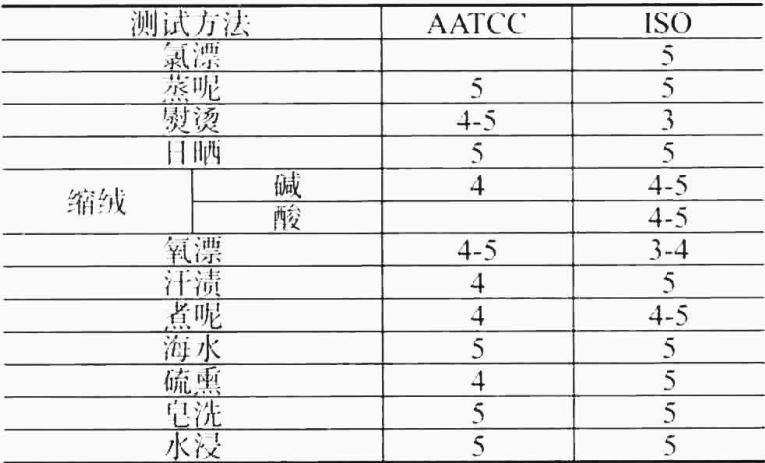 测试方法 AATCC ISO
氯漂 5
蒸呢 5 5
熨烫 4-5 3
日晒 5 5
缩绒 碱 4 4-5
酸 4-5
氧漂 4-5 3-4
汗渍 4 5
煮呢 4 4-5
海水 5 5
硫熏 4 5
皂洗 5 5
水浸 5 5